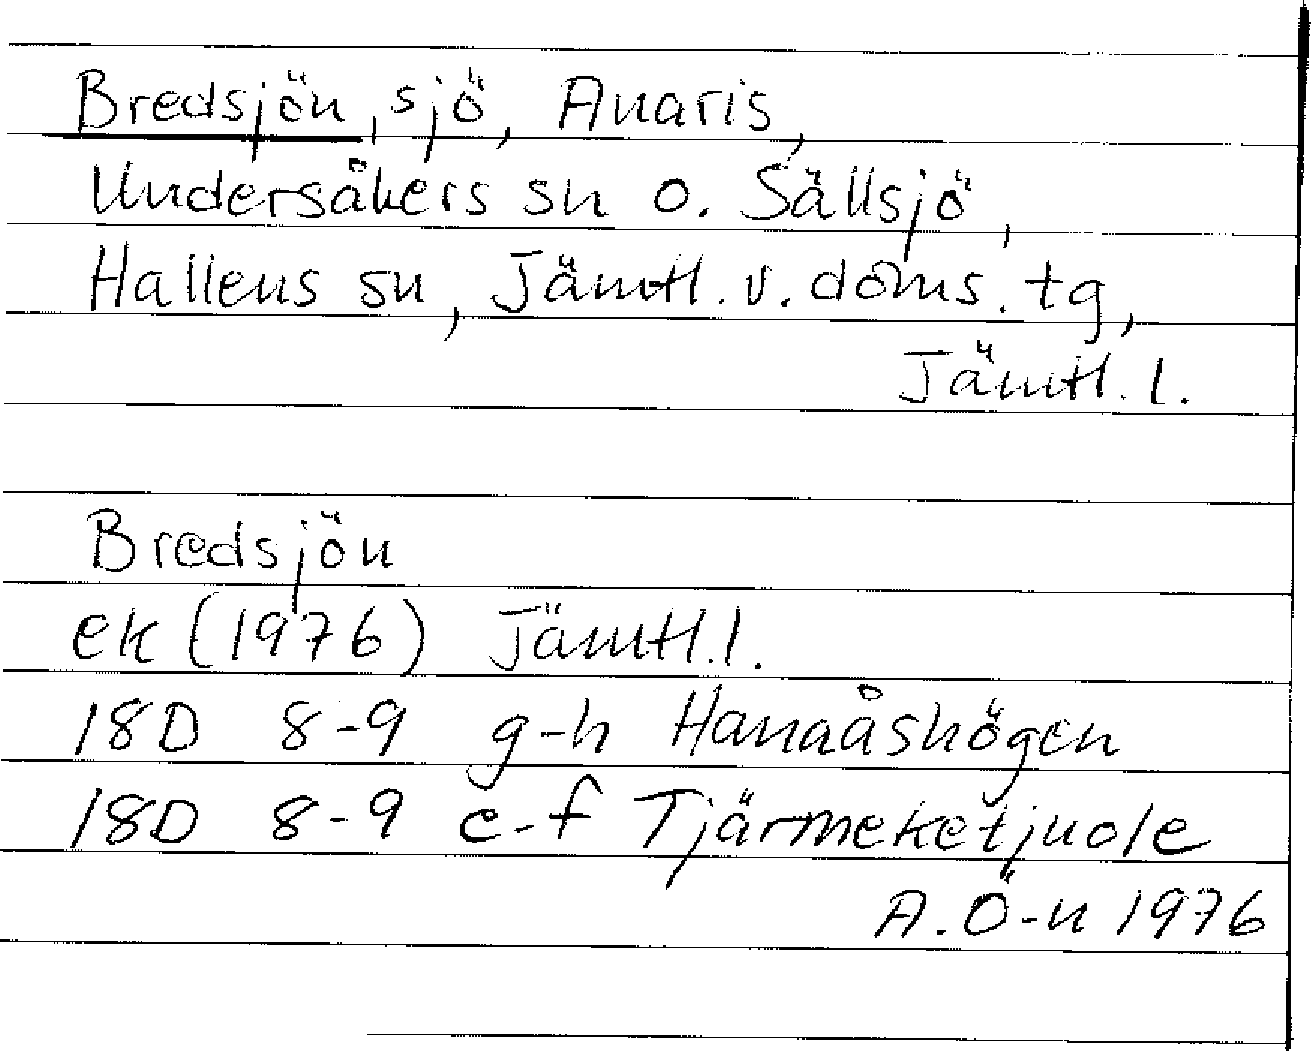 Bredsjön, sjö, Anaris,
Undersåkers sn o. Sällsjö,
Hallens sn, Jämtl. v. doms. tg,
Jämtl. l.
Bredsjön
ek (1976) Jämtl. l.
18D 8-9 g-h Hanaåshögen
18D 8-9 e-f Tjärmeketjuole
A. Ö-n 1976